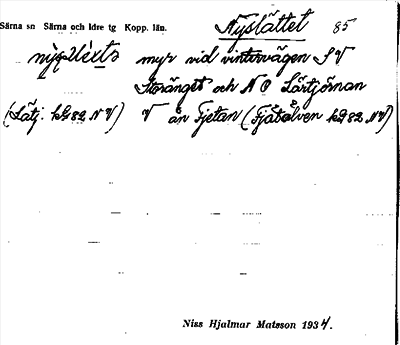 Särna sn Särna och Idre tg Kopp. län. Nyslåttet 85
myr vid vintervägen S V
Storänget och N O Lärtjärnan
(Lätj. kbl 82 N V) V ån Fjetan (Fjätälven kbl 82 N V)
Niss Hjalmar Matsson 1934.